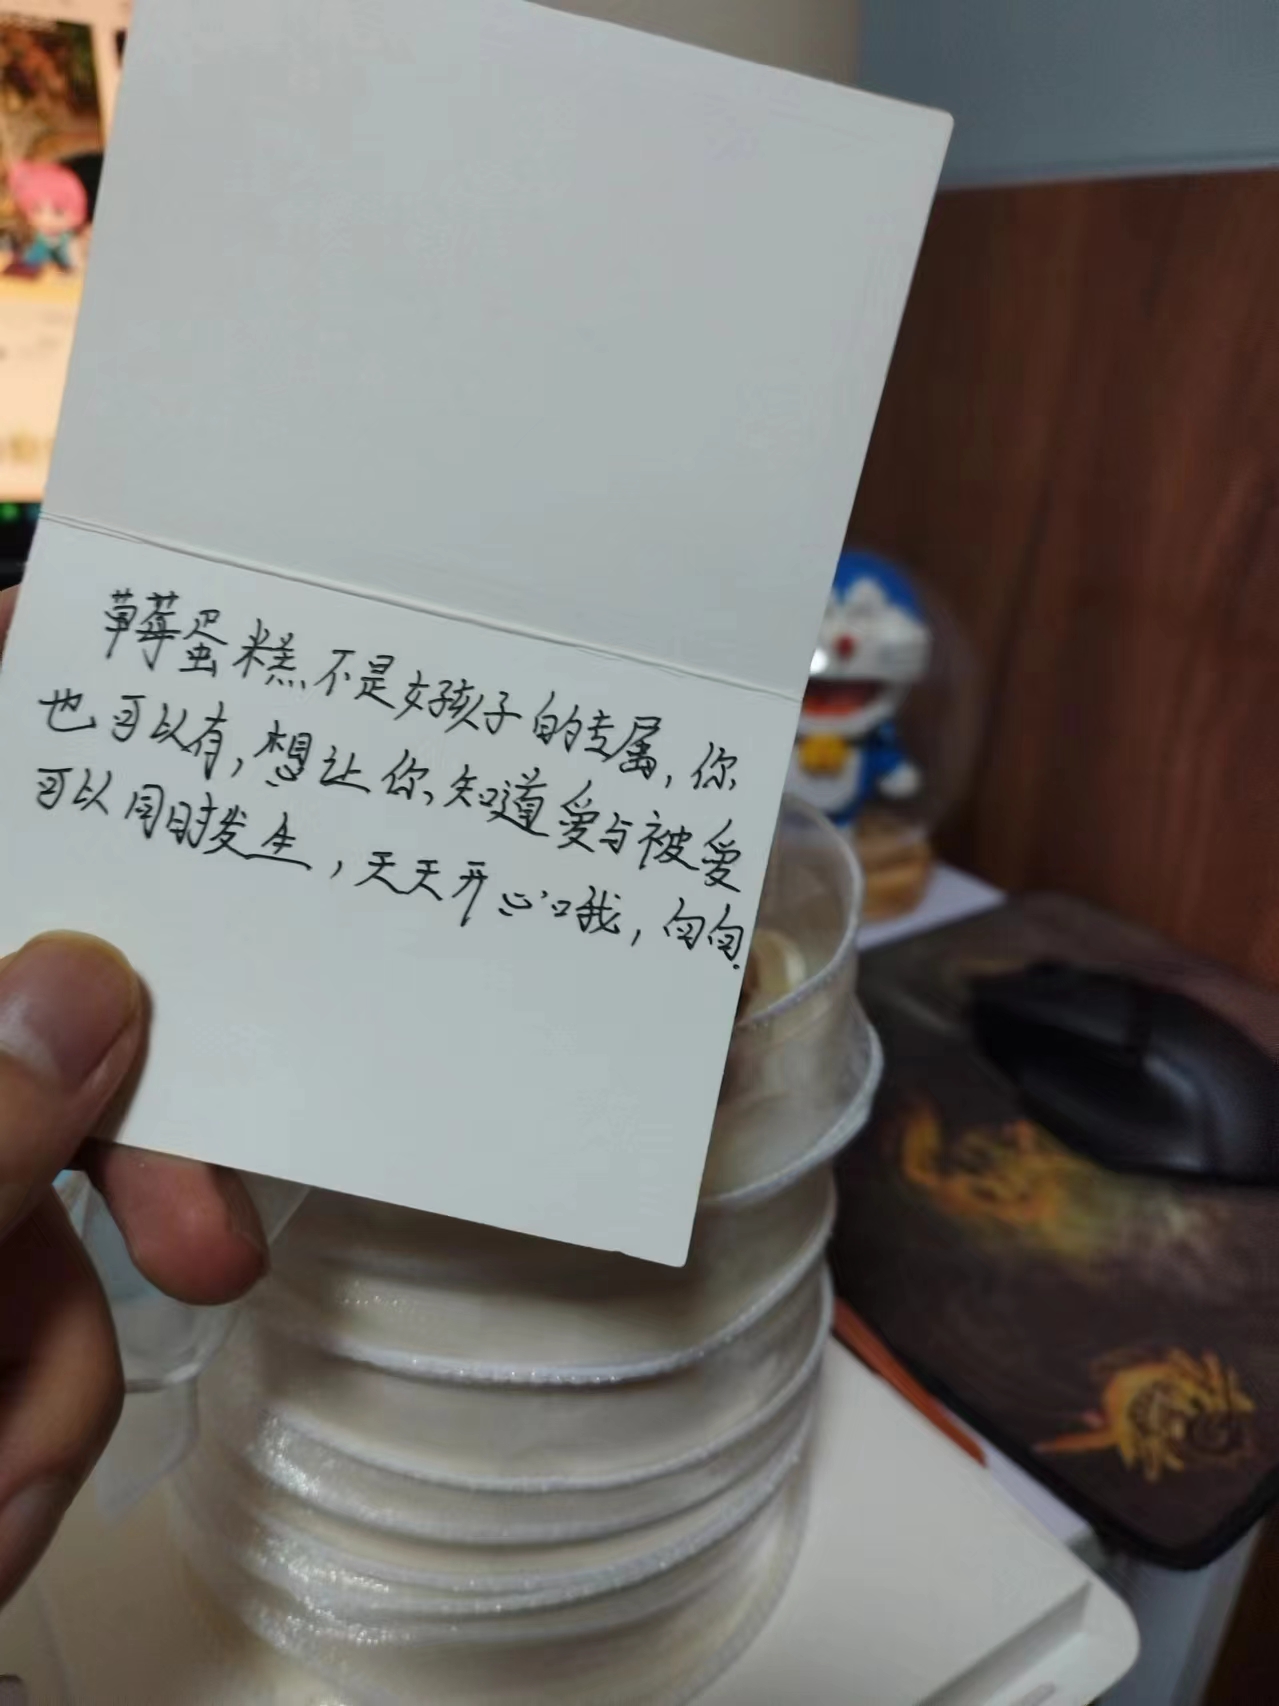 草莓蛋糕不是好孩子的专属，你
也可以有，想让你知道爱与被爱
可以同时发生，天天开心哦，句句.